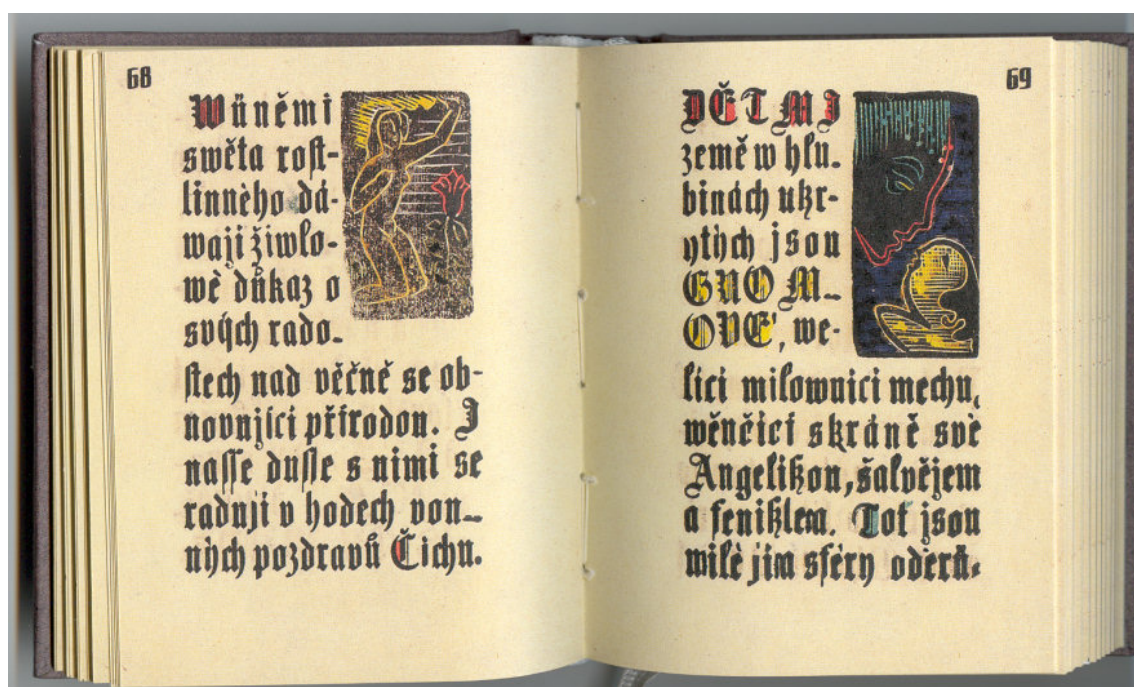 68
Wůněmi
swěta rost-
linného dá-
wají žiwlo-
wé důkaz o
svých rado-
stech nad věčně se ob-
novující přírodou. I
nasse dusse s nimi se
radují v hodech von-
ných pozdravů Čichu.
69
DĚTMI
země w hlu-
binách ukr-
ytých jsou
GNOM-
OVÉ, we-
lící milowníci mechu,
wěnčící skráně své
Angelikou, šalvějem
a feniklem. Toť jsou
milé jim sféry oderů-